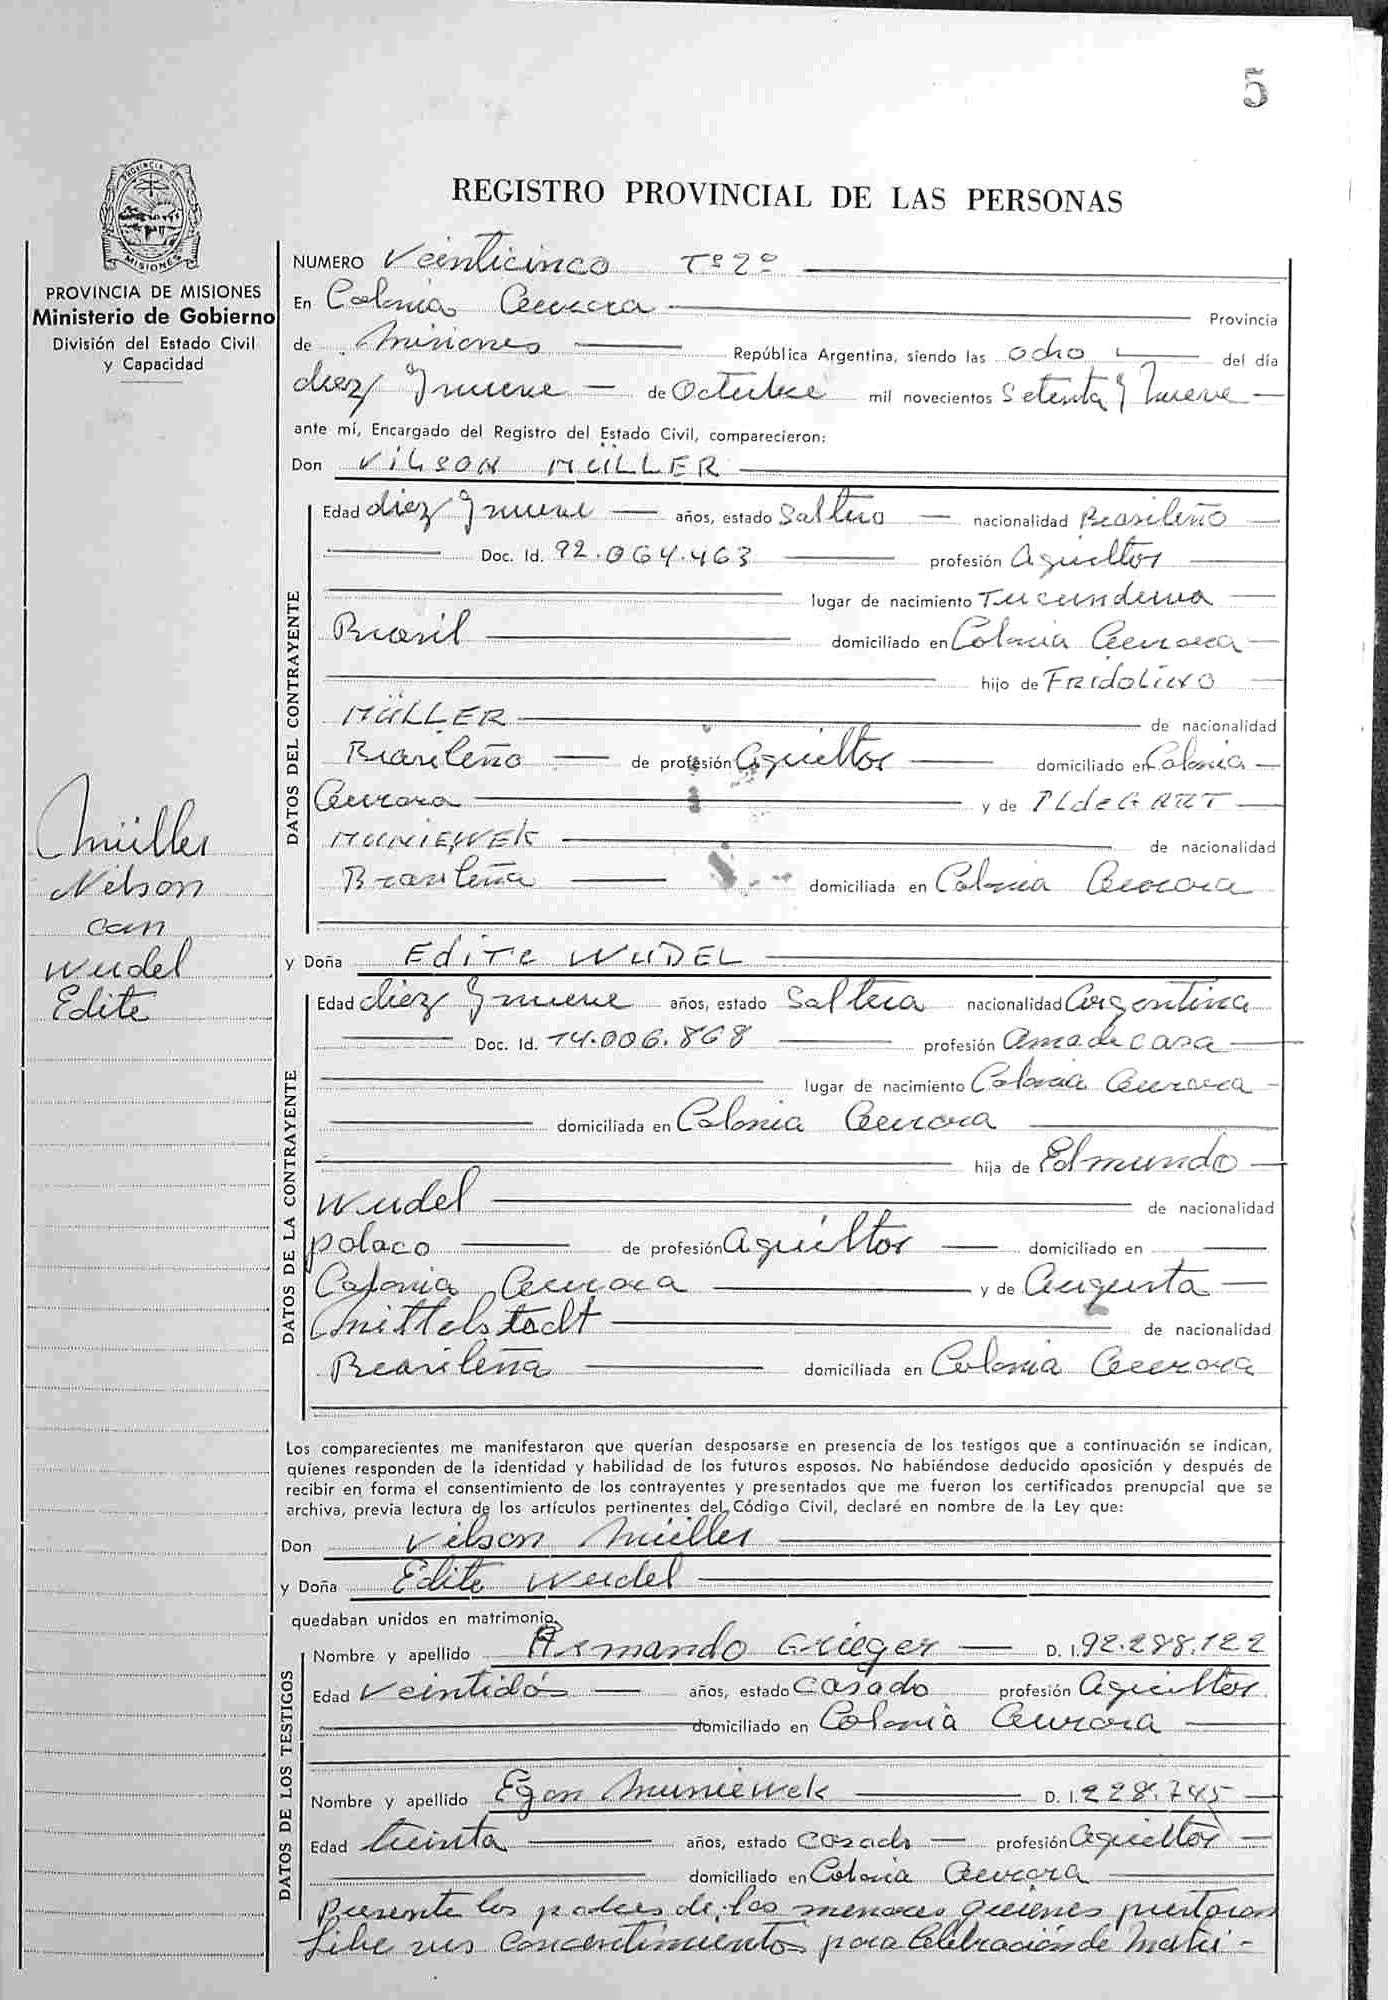 5
REGISTRO PROVINCIAL DE LAS PERSONAS
PROVINCIA DE
MISIONES
PROVINCIA DE MISIONES
Ministerio de Gobierno
División del Estado Civil
y Capacidad
Müller
Nilson
con
Wudel
Edite
NUMERO Veinticinco Tº 2º
En Colonia Aurora Provincia
de Misiones República Argentina, siendo las ocho del día
diez y nueve de Octubre mil novecientos setenta y nueve
ante mí, Encargado del Registro del Estado Civil, comparecieron:
Don VILSON MÜLLER
DATOS DEL CONTRAYENTE
Edad diez y nueve años, estado Soltero nacionalidad Brasileño
Doc. Id. 92.064.463 profesión Agricultor
lugar de nacimiento Tucunduva
Brasil domiciliado en Colonia Aurora
hijo de FRIDOLINO
MÜLLER de nacionalidad
Brasileño de profesión Agricultor domiciliado en Colonia
Aurora y de ILdeGART
MUNIEWEK de nacionalidad
Brasileña domiciliada en Colonia Aurora
y Doña EdiTe WUDEL
DATOS DE LA CONTRAYENTE
Edad diez y nueve años, estado Soltera nacionalidad Argentina
Doc. Id. 14.006.868 profesión Ama de casa
lugar de nacimiento Colonia Aurora
domiciliada en Colonia Aurora
hija de Edmundo
Wudel de nacionalidad
polaco de profesión Agricultor domiciliado en
Colonia Aurora y de Augusta
Mittelstadt de nacionalidad
Brasileña domiciliada en Colonia Aurora
Los comparecientes me manifestaron que querían desposarse en presencia de los testigos que a continuación se indican,
quienes responden de la identidad y habilidad de los futuros esposos. No habiéndose deducido oposición y después de
recibir en forma el consentimiento de los contrayentes y presentados que me fueron los certificados prenupcial que se
archiva, previa lectura de los artículos pertinentes del Código Civil, declaré en nombre de la Ley que:
Don Vilson Müller
y Doña Edite Wudel
quedaban unidos en matrimonio.
DATOS DE LOS TESTIGOS
Nombre y apellido Armando Grieger D. I. 92.288.122
Edad Veintidós años, estado Casado profesión Agricultor
domiciliado en Colonia Aurora
Nombre y apellido Egon Muniewek D. I. 228.745
Edad treinta años, estado casado profesión Agricultor
domiciliado en Colonia Aurora
Presente los padres de los menores quienes prestaron
libre sus concentimientos para celebración de Matri-